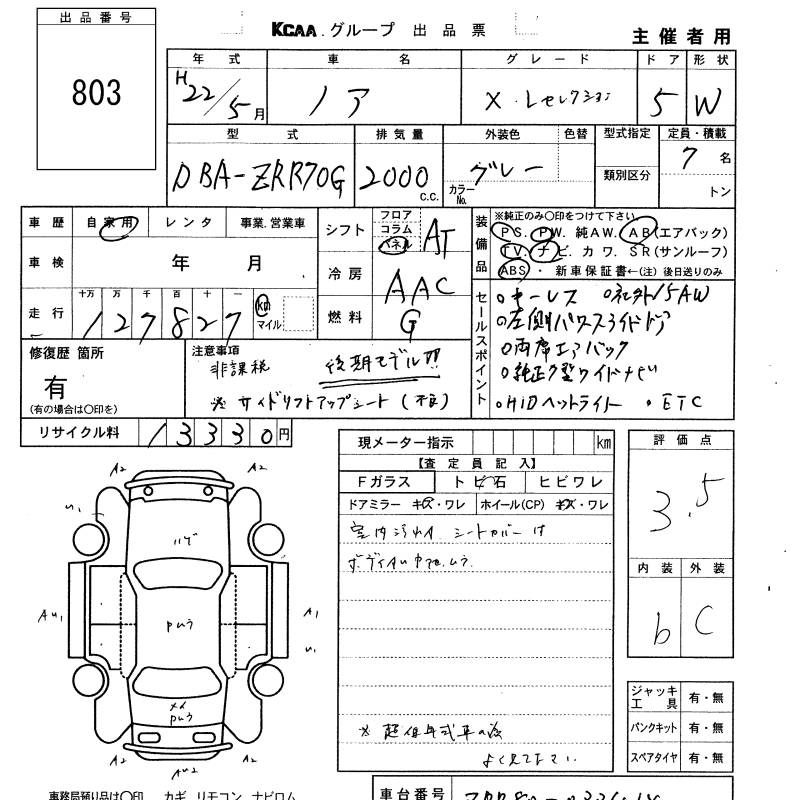 出品番号
803
KCAA.グループ 出品票
主催者用
年式 車名 グレード ドア 形状
H22/5月 ノア X.Lセレクション 5 W
型式 排気量 外装色 色替 型式指定 定員・積載
DBA-ZRR70G 2000 c.c. グレー カラーNo. 類別区分 7名
トン
車歴 自家用 レンタ 事業.営業車
シフト フロア コラム パネル AT
装備品 ※純正のみ〇印をつけて下さい
PS. PW. 純AW. AB(エアバック)
TV. ナビ. カワ. SR(サンルーフ)
ABS・新車保証書←(注) 後日送りのみ
車検 年 月
冷房 AAC
走行 十万 万 千 百 十 一
127827 km マイル
燃料 G
セールスポイント
・キーレス ・社外15AW
・左側パワースライドドア
・両席エアバック
・純正8型ワイドナビ
・HIDヘットライト ・ETC
修復歴 箇所
有
(有の場合は〇印を)
注意事項
非課税 後期モデル!!
※サイドリフトアップシート(不良)
リサイクル料 13330円
現メーター指示 km
【査定員記入】
Fガラス トビ石 ヒビワレ
ドアミラー キズ・ワレ ホイール(CP) キズ・ワレ
室内汚れ シートカバー付
※ 超低年式車の為
よく見て下さい.
評価点
3.5
内装 外装
b C
ジャッキ工具 有・無
パンクキット 有・無
スペアタイヤ 有・無
A2 A2
ハゲ
A1
A2 A2
事務局預り品は〇印 カギ リモコン ナビロム
車台番号